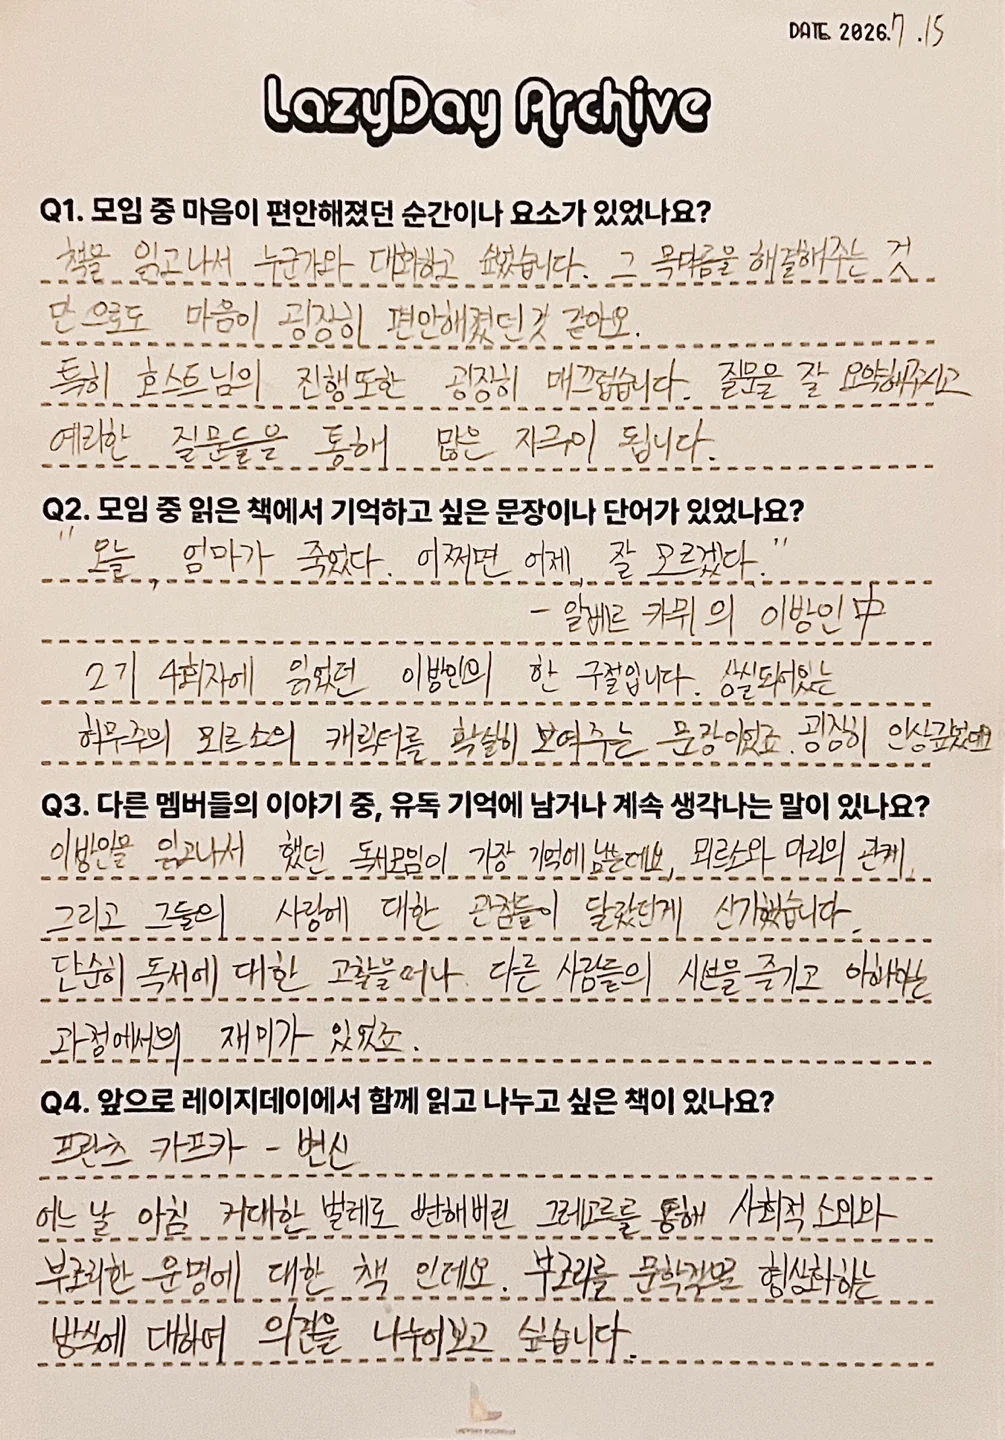 DATE. 2026.7.15
LazyDay Archive
Q1. 모임 중 마음이 편안해졌던 순간이나 요소가 있었나요?
책을 읽고나서 누군가와 대화하고 싶었습니다. 그 목마름을 해결해주는 것
만으로도 마음이 굉장히 편안해졌던것 같아요.
특히 호스트님의 진행또한 굉장히 매끄럽습니다. 질문을 잘 요약해주시고
예리한 질문들을 통해 많은 자극이 됩니다.
Q2. 모임 중 읽은 책에서 기억하고 싶은 문장이나 단어가 있었나요?
"오늘, 엄마가 죽었다. 어쩌면 어제, 잘 모르겠다."
- 알베르 카뮈의 이방인 中
2기 4회차에 읽었던 이방인의 한 구절입니다. 상실되어있는
허무주의 뫼르소의 캐릭터를 확실히 보여주는 문장이었죠. 굉장히 인상깊었어요
Q3. 다른 멤버들의 이야기 중, 유독 기억에 남거나 계속 생각나는 말이 있나요?
이방인을 읽고나서 했던 독서모임이 가장 기억에 남는데요, 뫼르소와 마리의 관계,
그리고 그들의 사랑에 대한 관점들이 달랐던게 신기했습니다.
단순히 독서에 대한 고찰을 떠나 다른 사람들의 시선을 즐기고 이해하는
과정에서의 재미가 있었죠.
Q4. 앞으로 레이지데이에서 함께 읽고 나누고 싶은 책이 있나요?
프란츠 카프카 - 변신
어느 날 아침 거대한 벌레로 변해버린 그레고르를 통해 사회적 소외와
부조리한 운명에 대한 책 인데요. 부조리를 문학적으로 형상화하는
방식에 대하여 의견을 나누어보고 싶습니다.